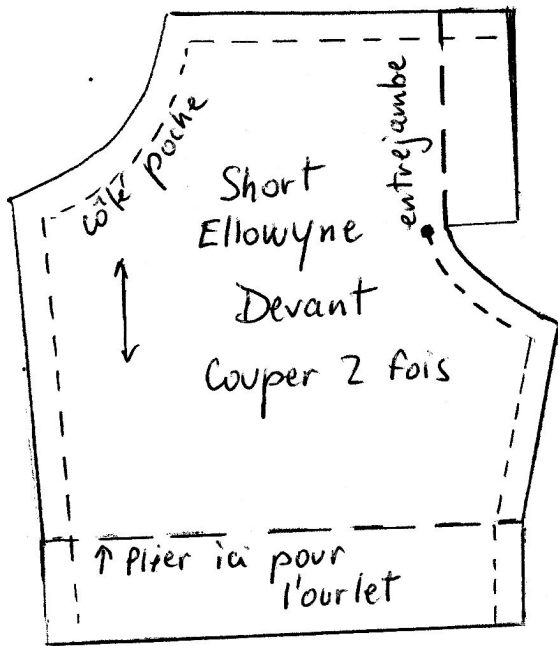 côté poche
entrejambe
Short
Ellowyne
Devant
Couper 2 fois
↑ Plier ici pour
l'ourlet